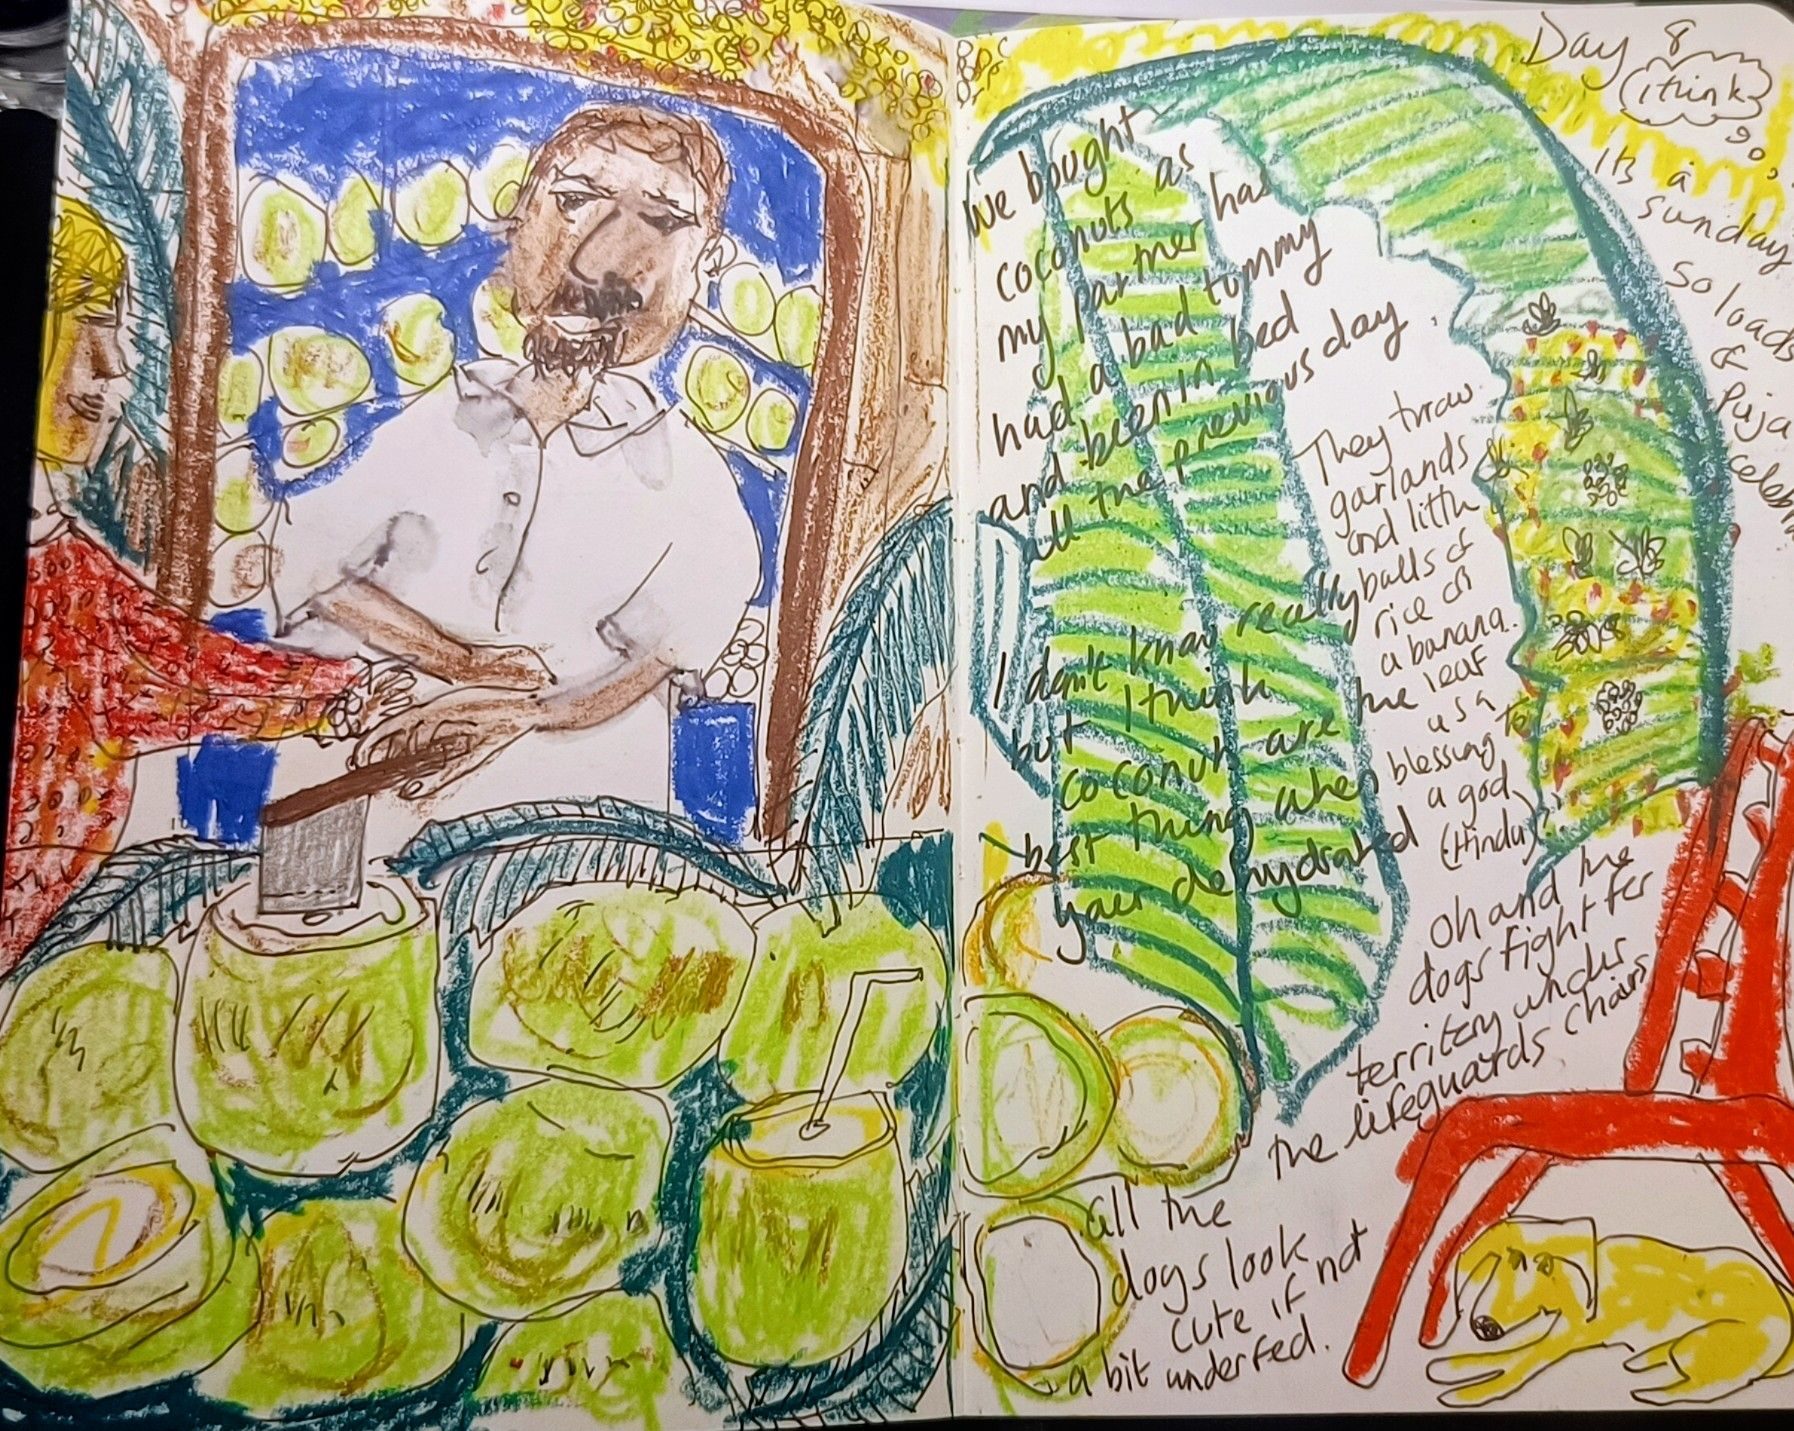 Day 8
i think
Its a
sunday
so loads
of
puja
We bought
coconuts as
my partner has
had a bad tommy
and been in bed
all the previous day.
They thraw
garlands
and little
balls of
rice on
a banana
leaf
as a
blessing to
a god
(Hindu)
I don't know really
but I think
coconuts are the
best thing when
your dehydrated
oh and the
dogs fight for
territory under
the lifeguards chairs
all the
dogs look
cute if not
a bit underfed.